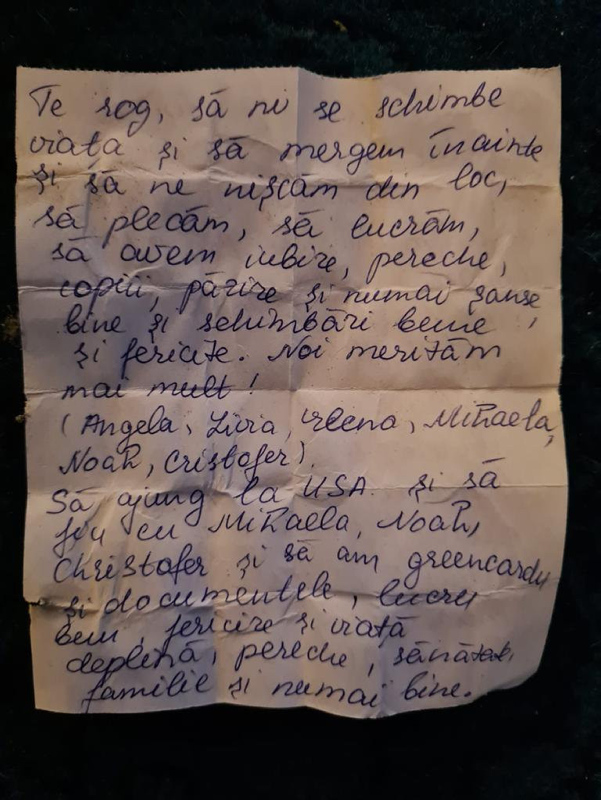 Te rog, să ni se schimbe
viața și să mergem înainte
și să ne mișcăm din loc,
să plecăm, să lucrăm,
să avem iubire, pereche,
copii, păzire și numai șanse
bine și schimbări bune,
și fericite. Noi merităm
mai mult!
(Angela, Livia, Irena, Mihaela,
Noah, Cristofer).
Să ajung la USA și să
fiu cu Mihaela, Noah,
Christofer și să am greencardu
și documentele, lucru
bun, fericire și viață
deplină, pereche, sănătate,
familie și numai bine.